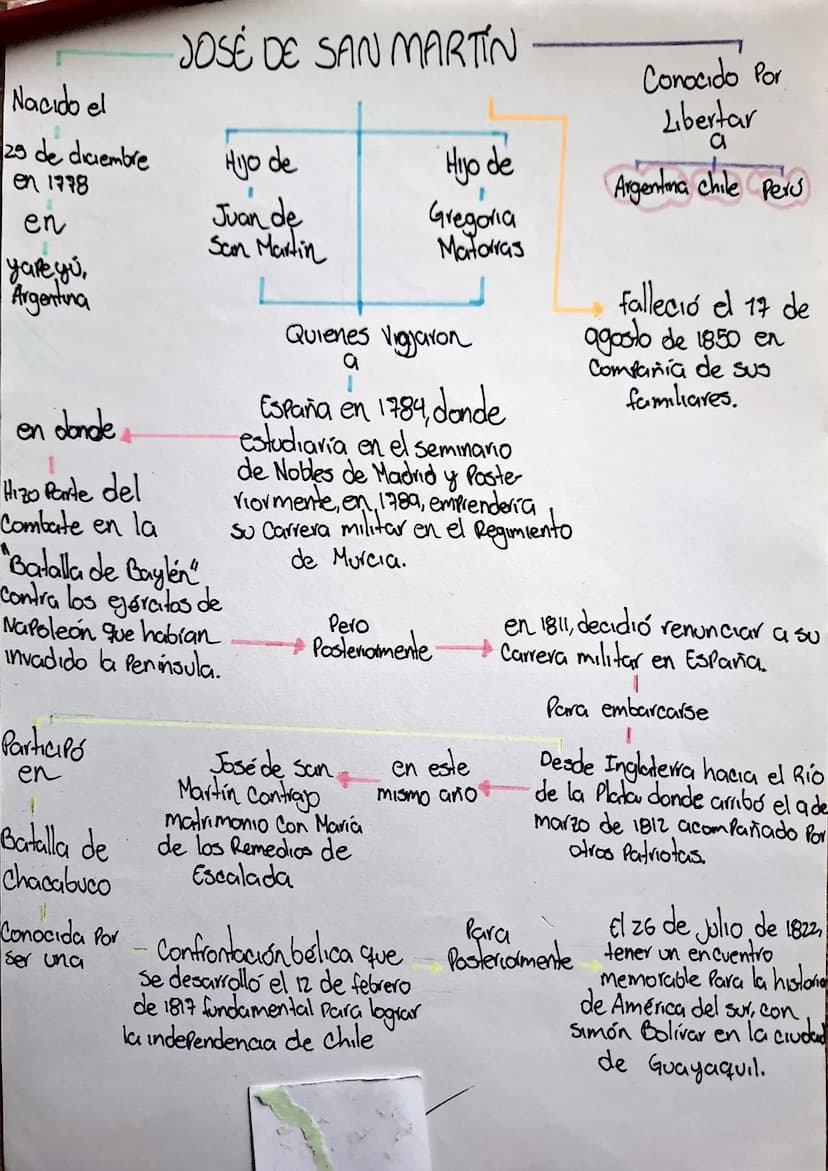 JOSÉ DE SAN MARTÍN
Nacido el
25 de diciembre
en 1778
en
yapeyú,
Argentina
Hijo de
Juan de
San Martin
Hijo de
Gregoria
Matorras
Conocido Por
Libertar
a
Argentina Chile Perú
falleció el 17 de
agosto de 1850 en
Compañía de sus
familiares.
Quienes Viajaron
a
España en 1784, donde
estudiaría en el seminario
de Nobles de Madrid y Poste-
riormente, en 1789, emprendería
su Carrera militar en el Regimiento
de Murcia.
en donde
Hizo Parte del
Combate en la
"Batalla de Baylén"
Contra los ejércitos de
Napoleón que habían
invadido la Península.
Pero
Posteriormente
en 1811, decidió renunciar a su
Carrera militar en España.
Para embarcarse
Desde Inglaterra hacia el Río
de la Plata donde arribó el 9 de
marzo de 1812 acompañado Por
otros Patriotas.
en este
mismo año
José de San
Martín Contrajo
matrimonio Con María
de los Remedios de
Escalada
Participó
en
Batalla de
Chacabuco
Conocida Por
ser una
Confrontación bélica que
se desarrolló el 12 de febrero
de 1817 fundamental Para lograr
la independencia de Chile
Para
Posteriormente
El 26 de Julio de 1822,
tener un encuentro
memorable Para la historia
de América del sur, con
Simón Bolívar en la ciudad
de Guayaquil.